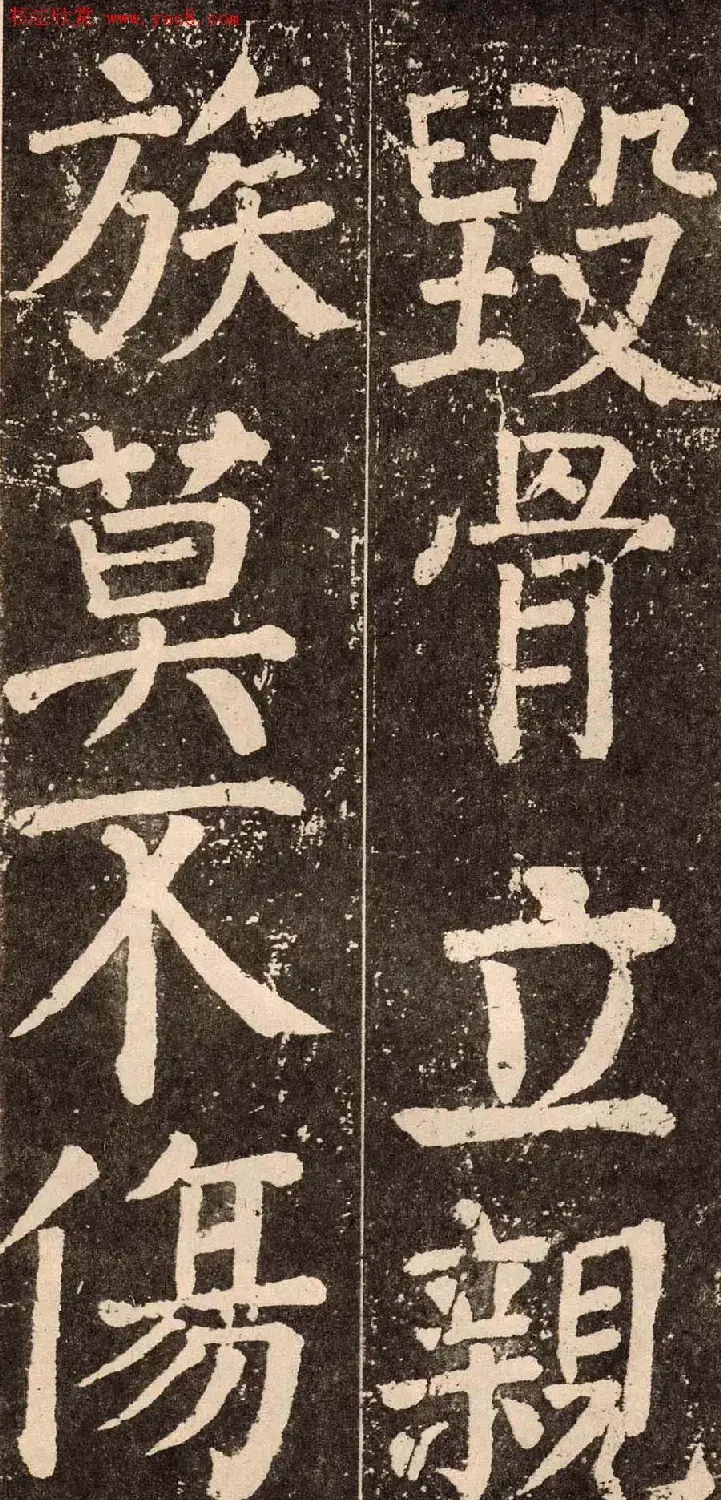 书法欣赏 www.yac8.com
毀骨立親
族莫不傷